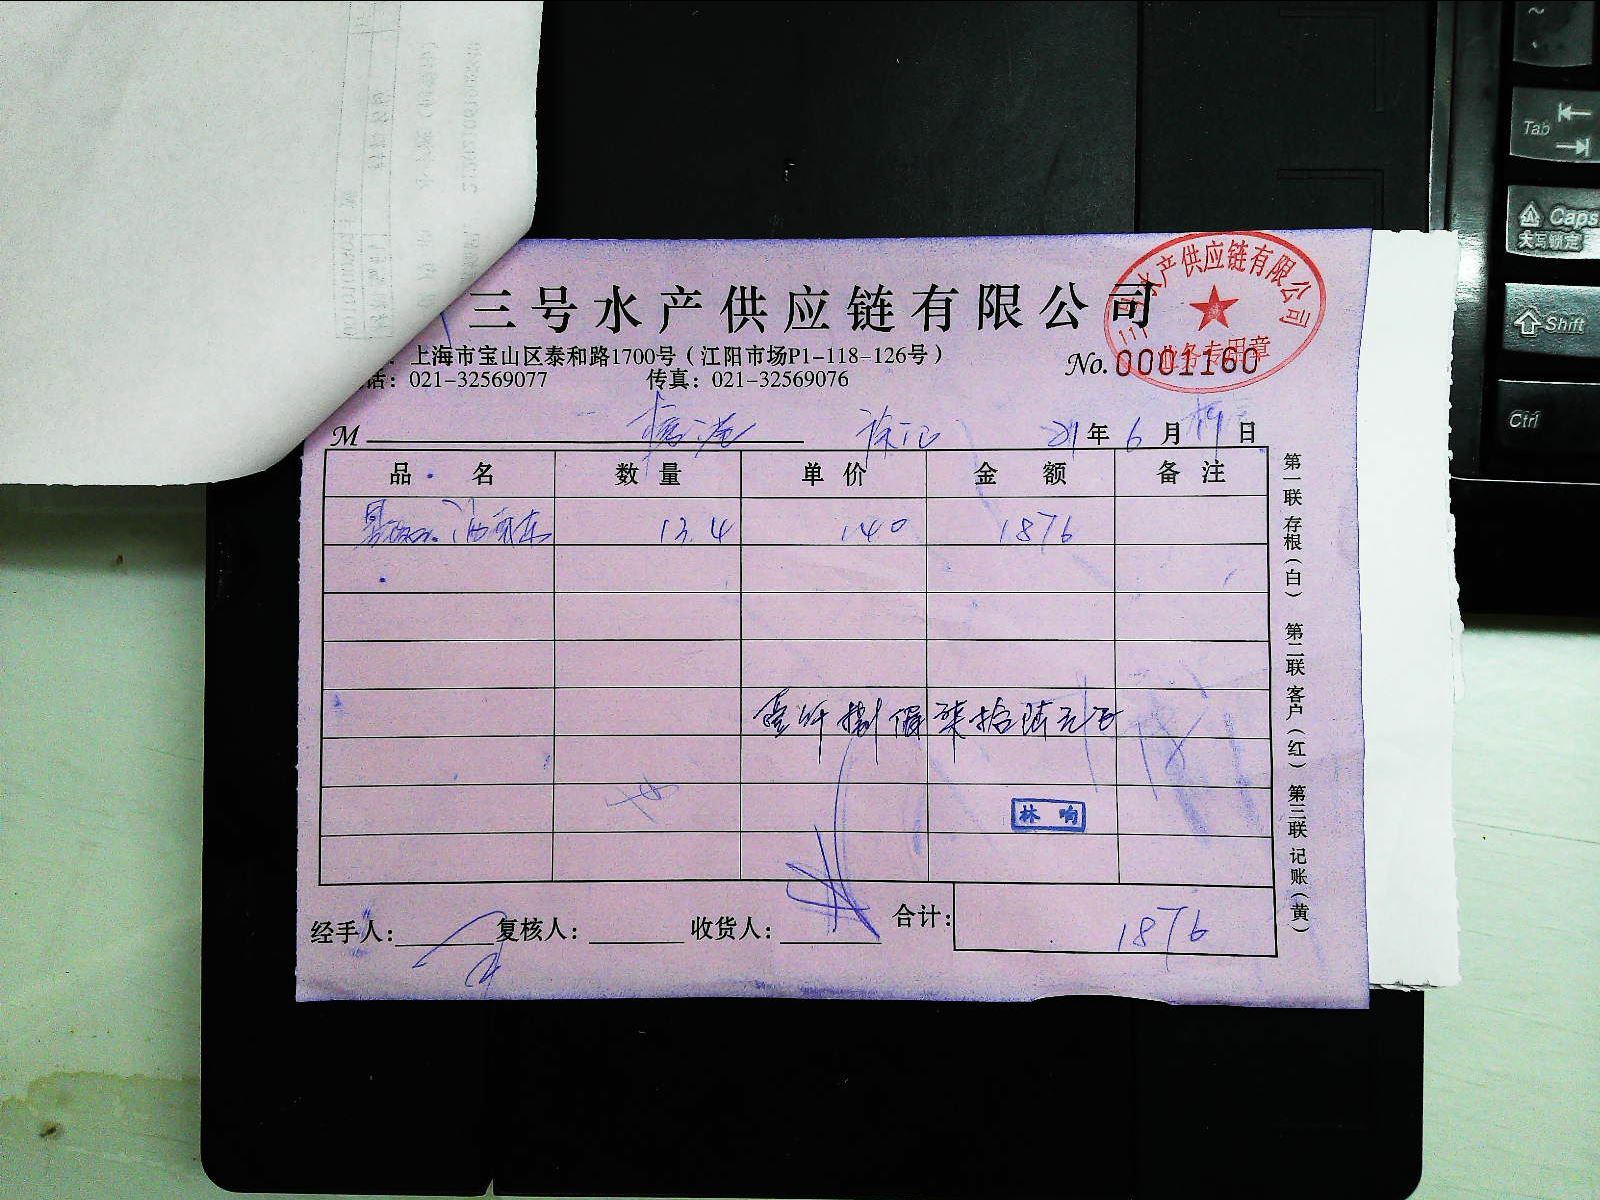 三号水产供应链有限公司
三号水产供应链有限公司
业务专用章
上海市宝山区泰和路1700号（江阳市场P1-118-126号）
No. 0001160
话：021-32569077 传真：021-32569076
M 21年6月19日
品名 数量 单价 金额 备注
13.4 140 1876
壹仟捌佰柒拾陆元正
林响
经手人： 复核人： 收货人： 合计：1876
第一联 存根（白） 第二联 客户（红） 第三联 记账（黄）
Tab
Caps
大写锁定
Shift
Ctrl